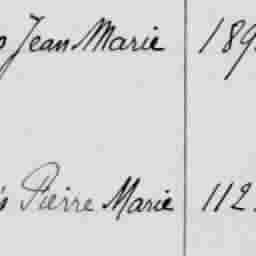 Jean Marie 189
Pierre Marie 112